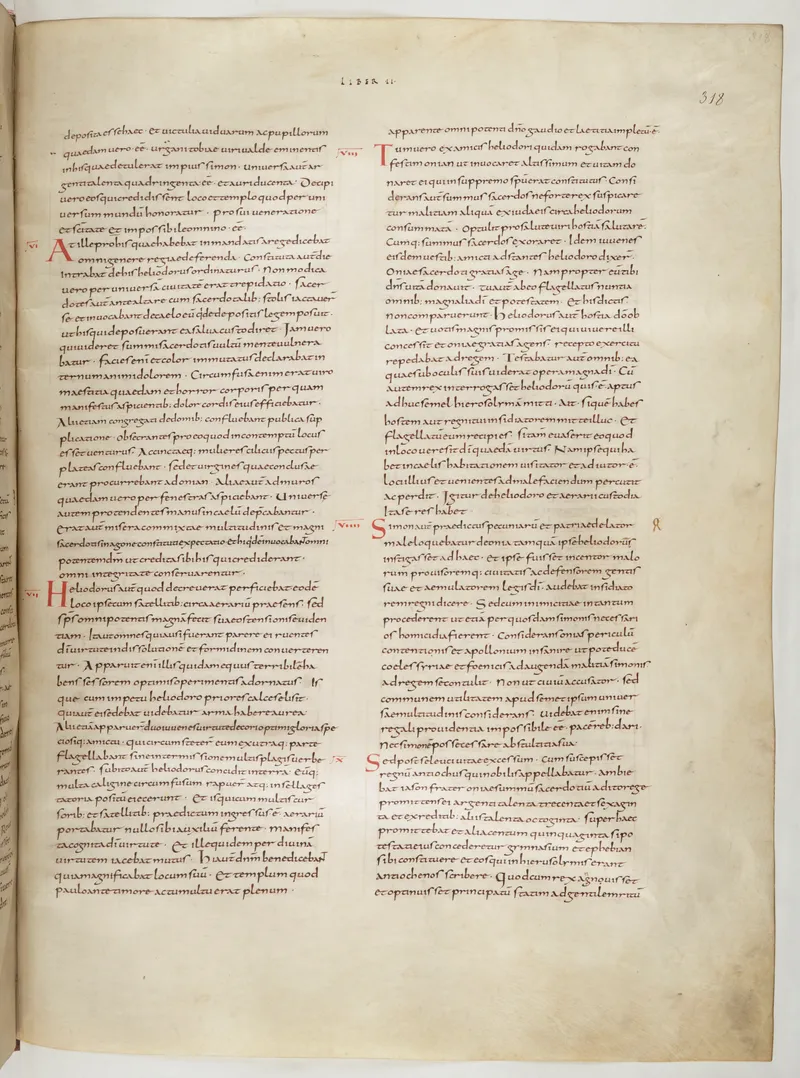 LIBER II
318
deposita esse haec · et uictualia uiduarum ac pupillorum
quaedam uero eē · urgani tobiae uiri ualde eminentis
in his quae detulerat impius simon · uniuersa aut̄ ar
genti talenta quadringenta eē · et auri ducenta · Decipi
uero eos qui credidissent loco et templo quod per uni
uersum mundū honoratur · pro sui ueneratione
et sc̄itate et impossibile omnino eē
VI At ille pro his quae habebat in mandatis a rege dicebat
omni genere regi ea deferenda · Constituta aut̄ die
intrabat de his heliodorus ordinaturus · Non modica
uero per uniuersā ciuitatē erat trepidatio · sacer
dotes aut̄ ante altare cum sacerdotalib: stolis iactauer̄
se et inuocabant de caelo eū qui de depositis legem posuit
ut his qui deposuerant ea salua custodiret · Iam uero
qui uideret summi sacerdotis uultū mente uulnera
batur · facies enī et color immutatus declarabat in
ternum animi dolorem · Circumfusa enim erat uiro
maestitia quaedam et horror corporis per quam
manifestus aspicientib: dolor cordis eius efficiebatur ·
Alii etiam congregati de domib: confluebant publica sup
plicatione · obsecrantes pro eo quod in contemptū locus
esset uenturus · Accinctaeq: mulieres ciliciis pectus per
plateas confluebant · sed et uirgines quae conclusae
erant procurrebant ad onian · Aliae aut̄ ad muros
quaedam uero per fenestras aspiciebant · Uniuersę
autem protendentes manus in caelū depcabantur ·
Erat aut̄ misera commixtae multitudinis et magni
sacerdotis in agone constituti expectatio et hi qdem inuocabaɴ omni
potentem dm̄ ut credita sibi his qui crediderant ·
omni integritate conseruarentur ·
VII Heliodorus aut̄ quod decreuerat perficiebat eodē
loco ipse cum satellitib: circa aerariū praesens · sed
sp̄s omnipotentis magnā fecit suae ostensionis euiden
tiam · Ita ut omnes qui ausi fuerant parere ei ruentes
dī uirtute in dissolutione et formidinem conuerteren
tur · Apparuit enī illis quidam equus terribilē ha
bens sessorem optimis operimentis adornatus · Is
que cum impetu heliodoro priores calces elisit ·
qui aut̄ ei sedebat uidebatur arma habere aurea ·
Alii etiā apparuer̄ duo iuuenes uirtute decori optimi gloria spe
ciosiq: amictu · qui circumsteter̄ eum ex utraq: parte
flagellabant sine intermissione multis plagis uerbe
rantes · subito aut̄ heliodorus concidit in terra · eūq:
multa caligine circumfusum rapuer̄ atq: in sella ges
tatoria positū eiecerunt · Et is qui cum multis cur
sorib: et satellitib: praedictum ingressus ē aerariū
portabatur nullo sibi auxiliū ferente · manifes
ta cognita dī uirtute · Et ille quidem per diuinā
uirtutem iacebat mutus · Hi aut̄ dn̄m benedicebaɴ
quia magnificabat locum suū · Et templum quod
paulo ante timore ac tumultu erat plenum ·
apparente omnipotenti dn̄o gaudio et laetitia impletū ē·
VIII Tum uero ex amicis heliodori quidam rogabant con
festim onian ut inuocaret altissimum et uitam do
naret ei qui in suppremo sp̄u erat constitutus · Consi
derans aut̄ summus sacerdos ne forte rex suspicare
tur malitiam aliqua ex iudaeis circa heliodorum
consummata · Optulit pro salute uiri hostiā salutare ·
Cumq: summus sacerdos exoraret · Idem iuuenes
eisdem uestib: amicti adstantes heliodoro dixer̄ ·
Oniae sacerdoti gratias age · Nam propter eū tibi
dn̄s uitā donauit · tu aut̄ ab eo flagellatus nuntia
omnib: magnalia dī et potestatem · Et his dictis
non comparuerunt · Heliodorus aut̄ hostia dō ob
lata · et uotis magnis promissis ei qui uiuere illi
concessit et oniae gratias agens · recepto exercitu
repedabat ad regem · Testabatur aut̄ omnib: ea
quae sub oculis suis uiderat opera magna dī · Cū
autem rex interrogasset heliodorū quis eē aptus
adhuc semel hierosolymā mitti · Ait · si quē habes
hostem aut regni tui insidiatorem mitte illuc · Et
flagellatū eum recipies · si tam euaserit eo quod
in loco uere sit dī quaedā uirtus · Nam ipse qui ha
bet in caelis habitationem uisitator et adiutor ē·
loci illius et uenientes ad malefaciendum percutit
ac perdit · Igitur de heliodoro et aerarii custodia
ita se res habet ·
VIIII Simon aut̄ praedictus pecuniarū et patriae delator
male loquebatur de onia tamquā ipse heliodorū
instigasset ad haec · et ipse fuisset incentor malo
rum prouisoremq: ciuitatis ac defensorem gentis
suae et aemulatorem legis dī · audebat insidiato
rem regni dicere · Sed cum inimicitiae in tantum
procederent ut etiā per quosdam simonis necessari
os homicidia fierent · Considerans onias periculū
contentionis et apollonium insanire utpote ducē
coelesyriae et foenicis ad augendā malitiā simonis
ad regem se contulit · Non ut ciuiū accusator · sed
communem utilitatem apud semet ipsum uniuer
sae multitudinis considerans · Uidebat enim sine
regali prouidentia impossibile eē· pacē reb: dari ·
Nec simonē posse cessare ab stultitia sua ·
X Sed post seleuci uitae excessum · Cum suscepisset
regnū antiochus qui nobilis appellabatur · Ambie
bat iason frater oniae summū sacerdotiū adito rege
promittens ei argenti talenta trecenta et sexagin
ta et ex reditib: aliis talenta octoginta · super haec
promittebat et alia centum quinquaginta si po
testati eius concederetur gymnasium et ephebian
sibi constituere et eos qui in hierusolymis erant
antiochenos scribere · Quod cum rex agnouisset
et optinuisset principatū statim ad gentilem ritū